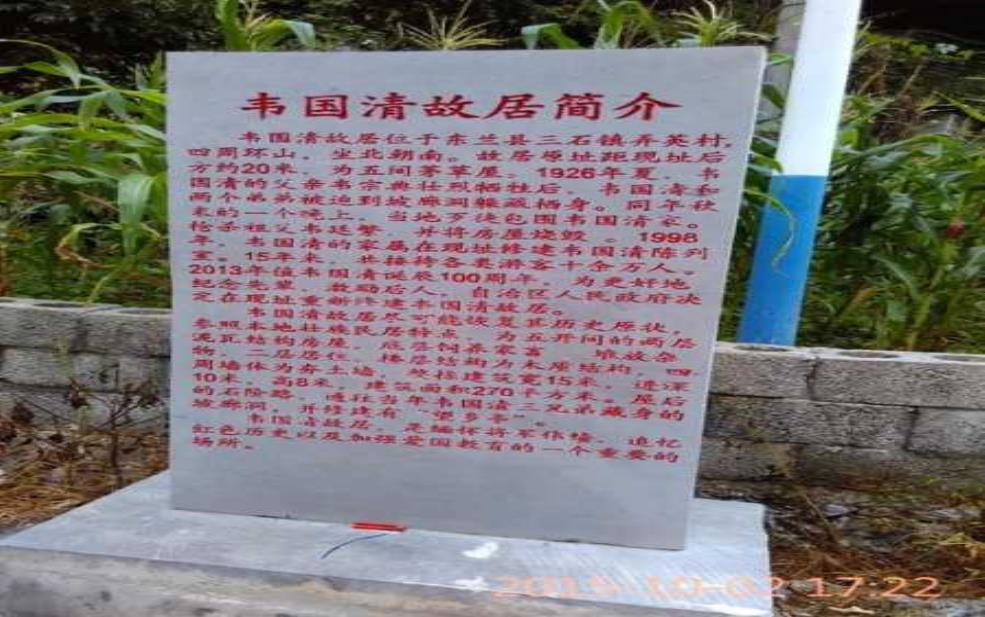 韦国清故居简介
韦国清故居位于东兰县三石镇弄英村,
四周环山,坐北朝南。故居原址距现址后
方约20米,为五间茅草屋。1926年夏,韦
国清的父亲韦宗典壮烈牺牲后,韦国清和
两个弟弟被迫到坡廊洞躲藏栖身。同年秋
末的一个晚上,当地歹徒包围韦国清家。
枪杀祖父韦廷繁,并将房屋烧毁。1998
年,韦国清的家属在现址修建韦国清陈列
室。15年来,共接待各类游客十余万人。
2013年值韦国清诞辰100周年,为更好地
纪念先辈,激励后人,自治区人民政府决
定在现址重新修建韦国清故居。
韦国清故居尽可能恢复其历史原状,
参照本地壮族民居特点,为五开间的两层
泥瓦结构房屋,底层饲养家畜、堆放杂
物,二层居住,楼层结构为木质结构,四
周墙体为夯土墙,整栋建筑宽15米,进深
10米,高8米,建筑面积270平方米。屋后
的石阶路,通往当年韦国清三兄弟藏身的
坡廊洞,并修建有“望乡亭”。
韦国清故居,是缅怀将军伟绩,追忆
红色历史以及加强爱国教育的一个重要的
场所。
2015-10-02 17:22